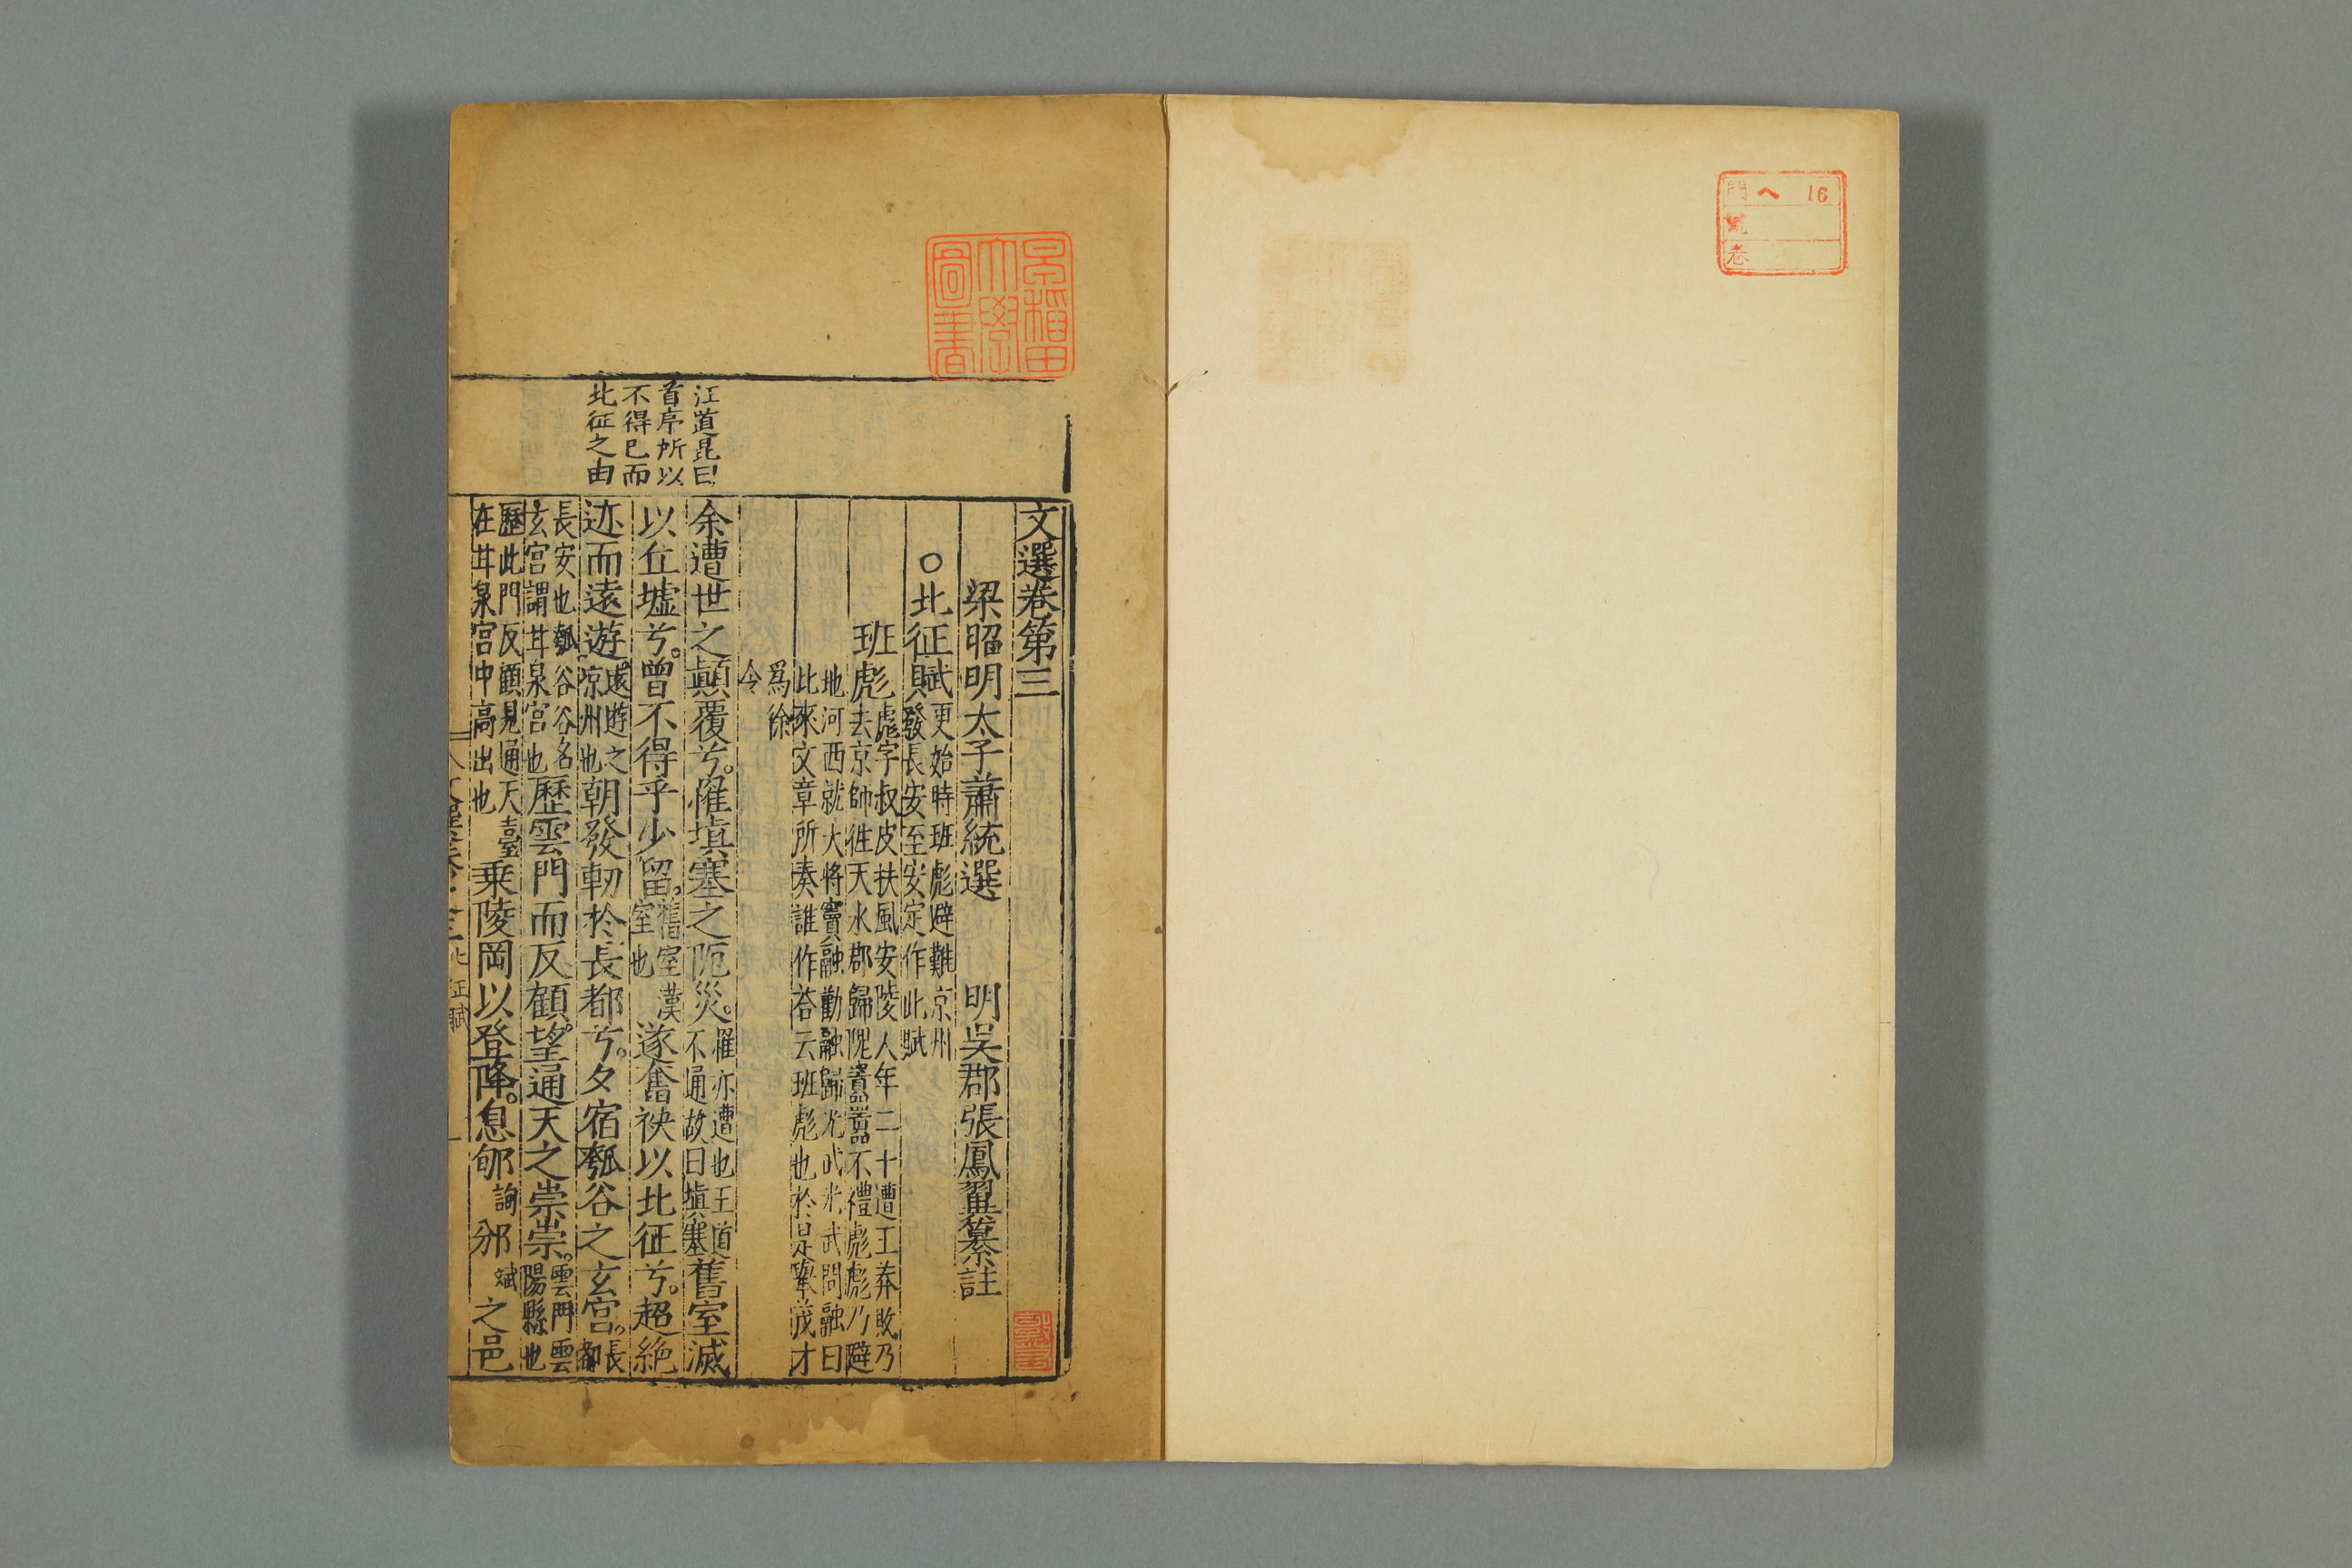 門 ヘ 16
號
卷
早稲田大學圖書
江道昆曰
首序所以
不得已而
北征之由
文選卷第三
梁昭明太子蕭統選 明吳郡張鳳翼纂註
○北征賦 更始時班彪避難京州
發長安至安定作此賦
班彪 彪字叔皮扶風安陵人年二十遭王莽敗乃
去京師徃天水郡歸隗囂囂不禮彪彪乃避
地河西就大將竇融勸融歸光武光武問融曰
此來文章所奏誰作荅云班彪也於是舉茂才
爲徐
令
余遭世之顛覆兮。罹塡塞之阨災。罹亦遭也王道
不通故曰塡塞舊室滅
以丘墟兮。曾不得乎少留。舊室漢
室也遂奮袂以北征兮。超絶
迹而遠遊。遠遊之
凉州也朝發軔於長都兮。夕宿瓠谷之玄宮。長都
長安也瓠谷谷名
玄宮謂甘泉宮也歷雲門而反顧。望通天之崇崇。雲門雲
陽縣也
歷此門反顧見通天臺
在甘泉宮中高出也乘陵岡以登降。息郇詢邠斌之邑